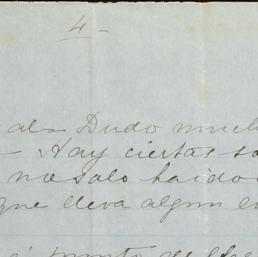 4-
al- Dudo much
- Hay ciertas so
no solo ha ido
que lleva algun
punto de